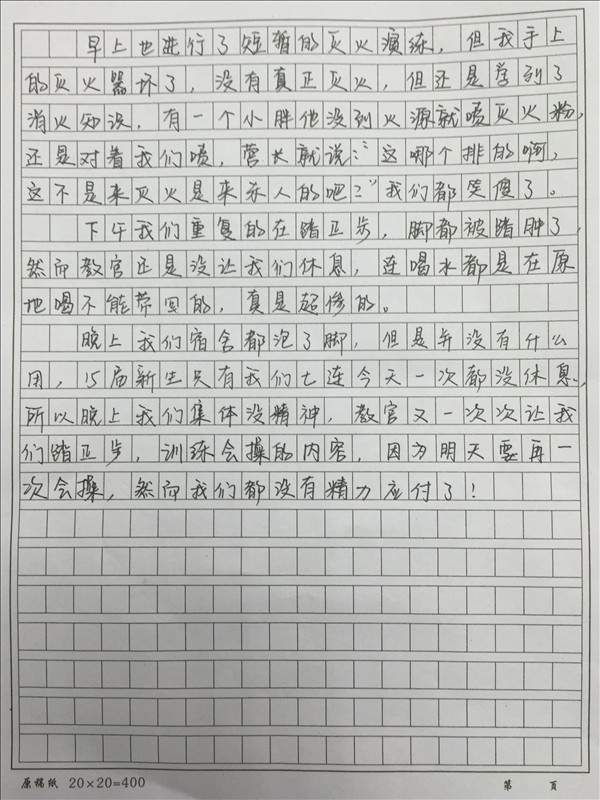 早上也进行了短暂的灭火演练，但我手上
的灭火器坏了，没有真正灭火，但还是学到了
消火知识，有一个小胖他没到火源就喷灭火粉，
还是对着我们喷，营长就说："这哪个排的啊，
这不是来灭火是来杀人的吧？"我们都笑傻了。
下午我们重复的在踏正步，脚都被踏肿了，
然而教官还是没让我们休息，连喝水都是在原
地喝不能带回的，真是超惨的。
晚上我们宿舍都泡了脚，但是并没有什么
用，15届新生只有我们七连今天一次都没休息，
所以晚上我们集体没精神，教官又一次次让我
们踏正步，训练会操的内容，因为明天要再一
次会操，然而我们都没有精力应付了！
原稿纸 20×20=400 第 页